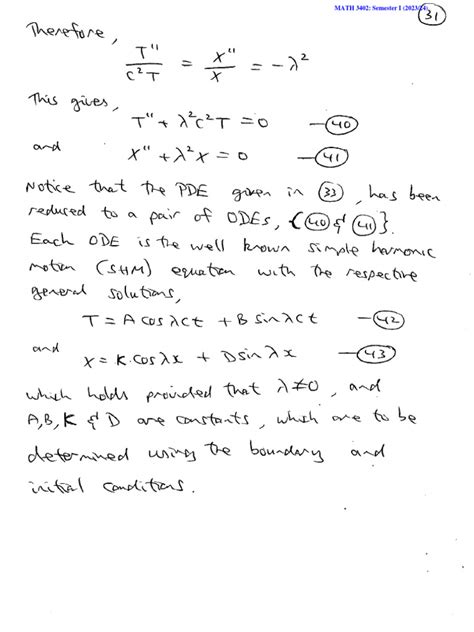 MATH 3402: Semester I (2023/24)
31
Therefore,
T''/c²T = X''/X = -λ²
This gives,
T'' + λ²c²T = 0 — 40
and
X'' + λ²X = 0 — 41
Notice that the PDE given in 33, has been
reduced to a pair of ODEs, {40 & 41}.
Each ODE is the well known simple harmonic
motion (SHM) equation with the respective
general solutions,
T = A cos λct + B sin λct — 42
and
X = K cos λx + D sin λx — 43
which holds provided that λ≠0, and
A, B, K & D are constants, which are to be
determined using the boundary and
initial conditions.